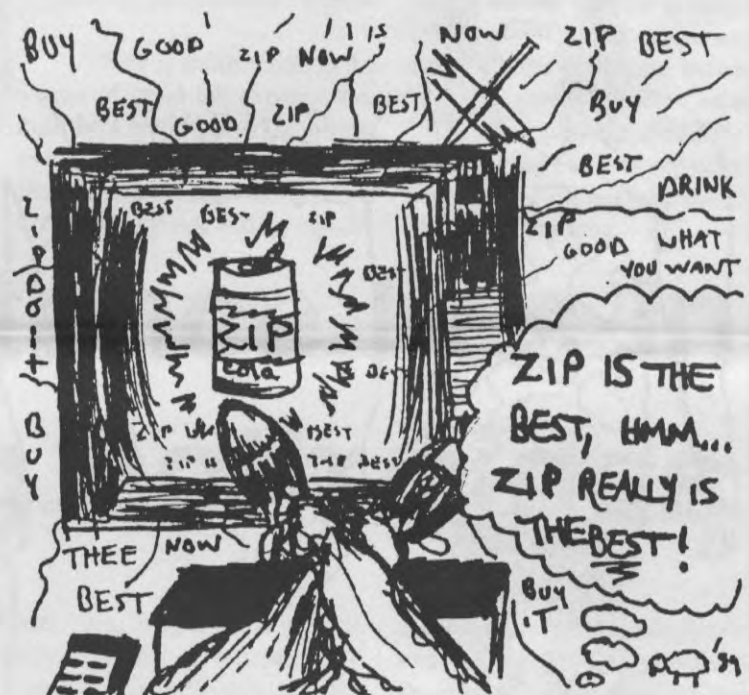 BUY GOOD ZIP NOW IS NOW ZIP BEST
BEST GOOD ZIP BEST BUY
BEST
DRINK
ZIP
GOOD WHAT
YOU WANT
BEST BEST ZIP
BEST
ZIP
COLA
BEST
ZIP DO IT BUY
ZIP IS THE
BEST, HMM...
ZIP REALLY IS
THE BEST!
THEE NOW
BEST
BUY
IT
'89